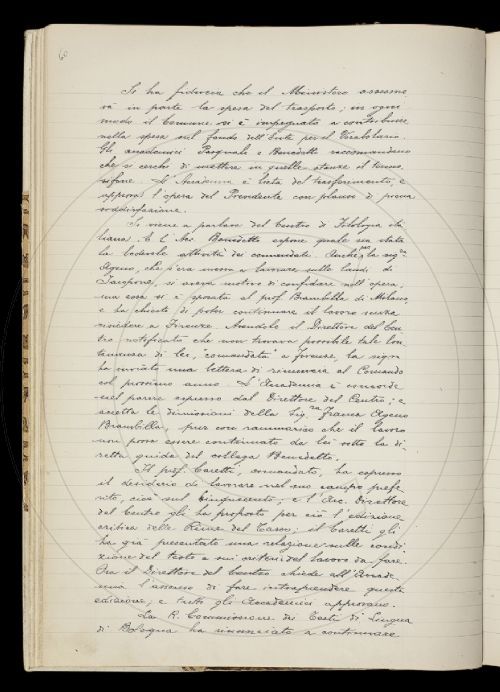 60
Si ha fiducia che il Ministero assume-
rà in parte la spesa del trasporto; in ogni
modo il Comune si è impegnato a contribuire
nella spesa sul fondo dell'Ente per il Vocabolario.
Gli accademici Pasquali e Benedetto raccomandano
che si cerchi di mettere in quelle stanze il termo-
sifone. L'Accademia è lieta del trasferimento, e
approva l'opera del Presidente con plauso di piena
soddisfazione.
Si viene a parlare del Centro di Filologia ita-
liana. E l'Acc. Benedetto espone quale sia stata
la lodevole attività dei comandati. Anche la sig.na
Ageno, che s'era messa a lavorare sulle laudi di
Jacopone, si aveva motivo di confidare nell'opera;
ma essa si è sposata al prof. Brambilla di Milano,
e ha chiesto di poter continuare il lavoro senza
risiedere a Firenze. Avendole il Direttore del Cen-
tro notificato che non trovava possibile tale lon-
tananza di lei, "comandata" a Firenze, la sig.na
ha inviato una lettera di rinunzia al Comando
col prossimo anno. L'Accademia è concorde
nel parere espresso dal Direttore del Centro; e
accetta le dimissioni della Sig.ra Franca Ageno
Brambilla, pur con rammarico che il lavoro
non possa essere continuato da lei sotto la di-
retta guida del collega Benedetto.
Il prof. Caretti, comandato, ha espresso
il desiderio di lavorare nel suo campo prefe-
rito, cioè sul Cinquecento; e l'Acc. Direttore
del Centro gli ha proposto per ciò l'edizione
critica delle Rime del Tasso; il Caretti gli
ha già presentato una relazione sulle condi-
zione del testo e sui criteri del lavoro da fare.
Ora il Direttore del Centro chiede all'Accade-
mia l'assenso di fare intraprendere questa
edizione; e tutti gli Accademici approvano.
La R. Commissione dei Testi di Lingua
di Bologna ha rinunciato a continuare